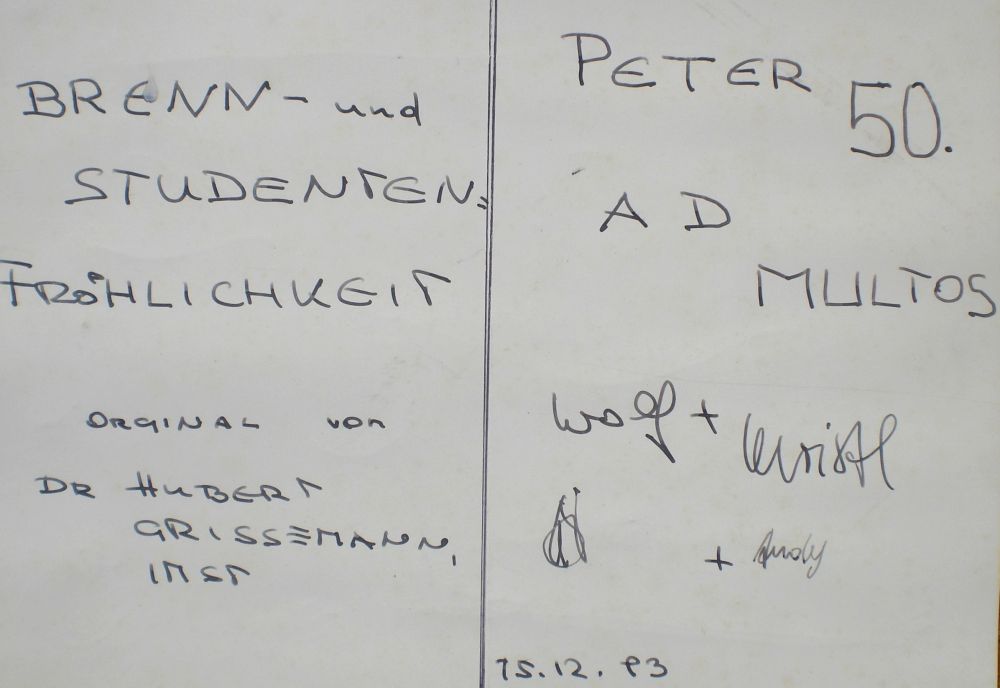 BRENN- und
STUDENTEN=
FRÖHLICHKEIT
ORGINAL von
DR HUBERT
GRISSEMANN,
IMST
PETER
50.
AD
MULTOS
Wolf + Christl
+ Andy
15.12.93